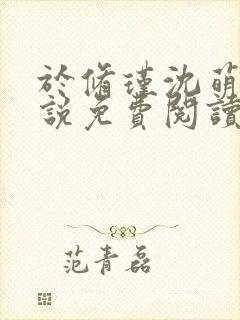 於脩瑾沈萌
說免費閱讀
范青磊